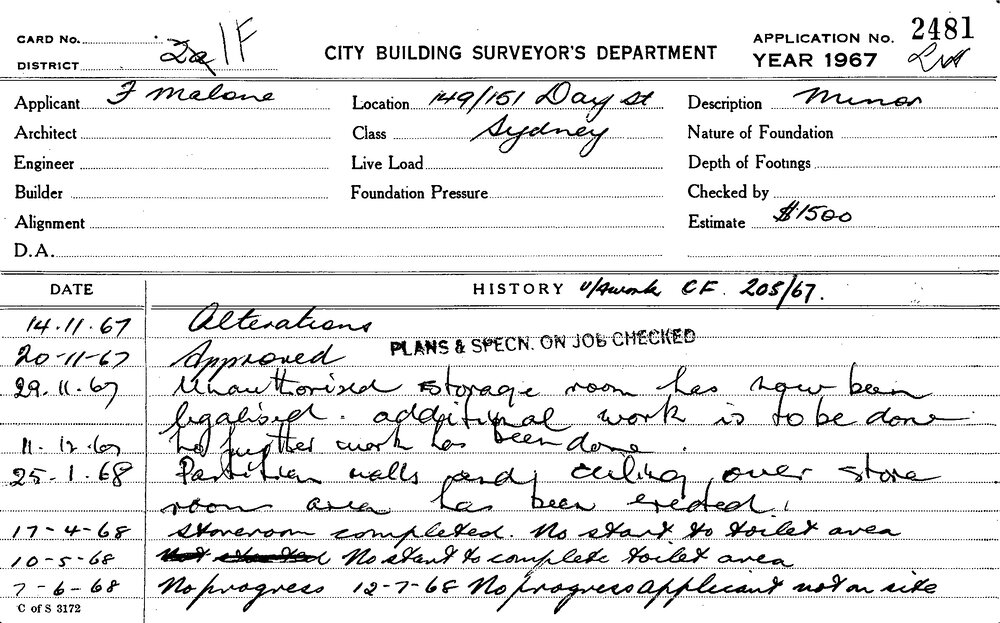 CARD No.
DISTRICT 2a/F
CITY BUILDING SURVEYOR'S DEPARTMENT
APPLICATION No. 2481
YEAR 1967
Applicant F Malone
Location 149/151 Day St
Description Minor
Architect
Class Sydney
Nature of Foundation
Engineer
Live Load
Depth of Footings
Builder
Foundation Pressure
Checked by
Alignment
Estimate $1500
D.A.
DATE
HISTORY U/A work CF. 205/67.
14.11.67 Alterations
20-11-67 Approved PLANS & SPECN. ON JOB CHECKED
29.11.67 Unauthorised storage room has now been
legalised. additional work is to be done
11.12.67 No further work has been done.
25.1.68 Partition walls and ceiling over store
room area has been erected.
17-4-68 Storeroom completed. No start to toilet area
10-5-68 No start to complete toilet area
7-6-68 No progress 12-7-68 No progress applicant not on site
C of S 3172